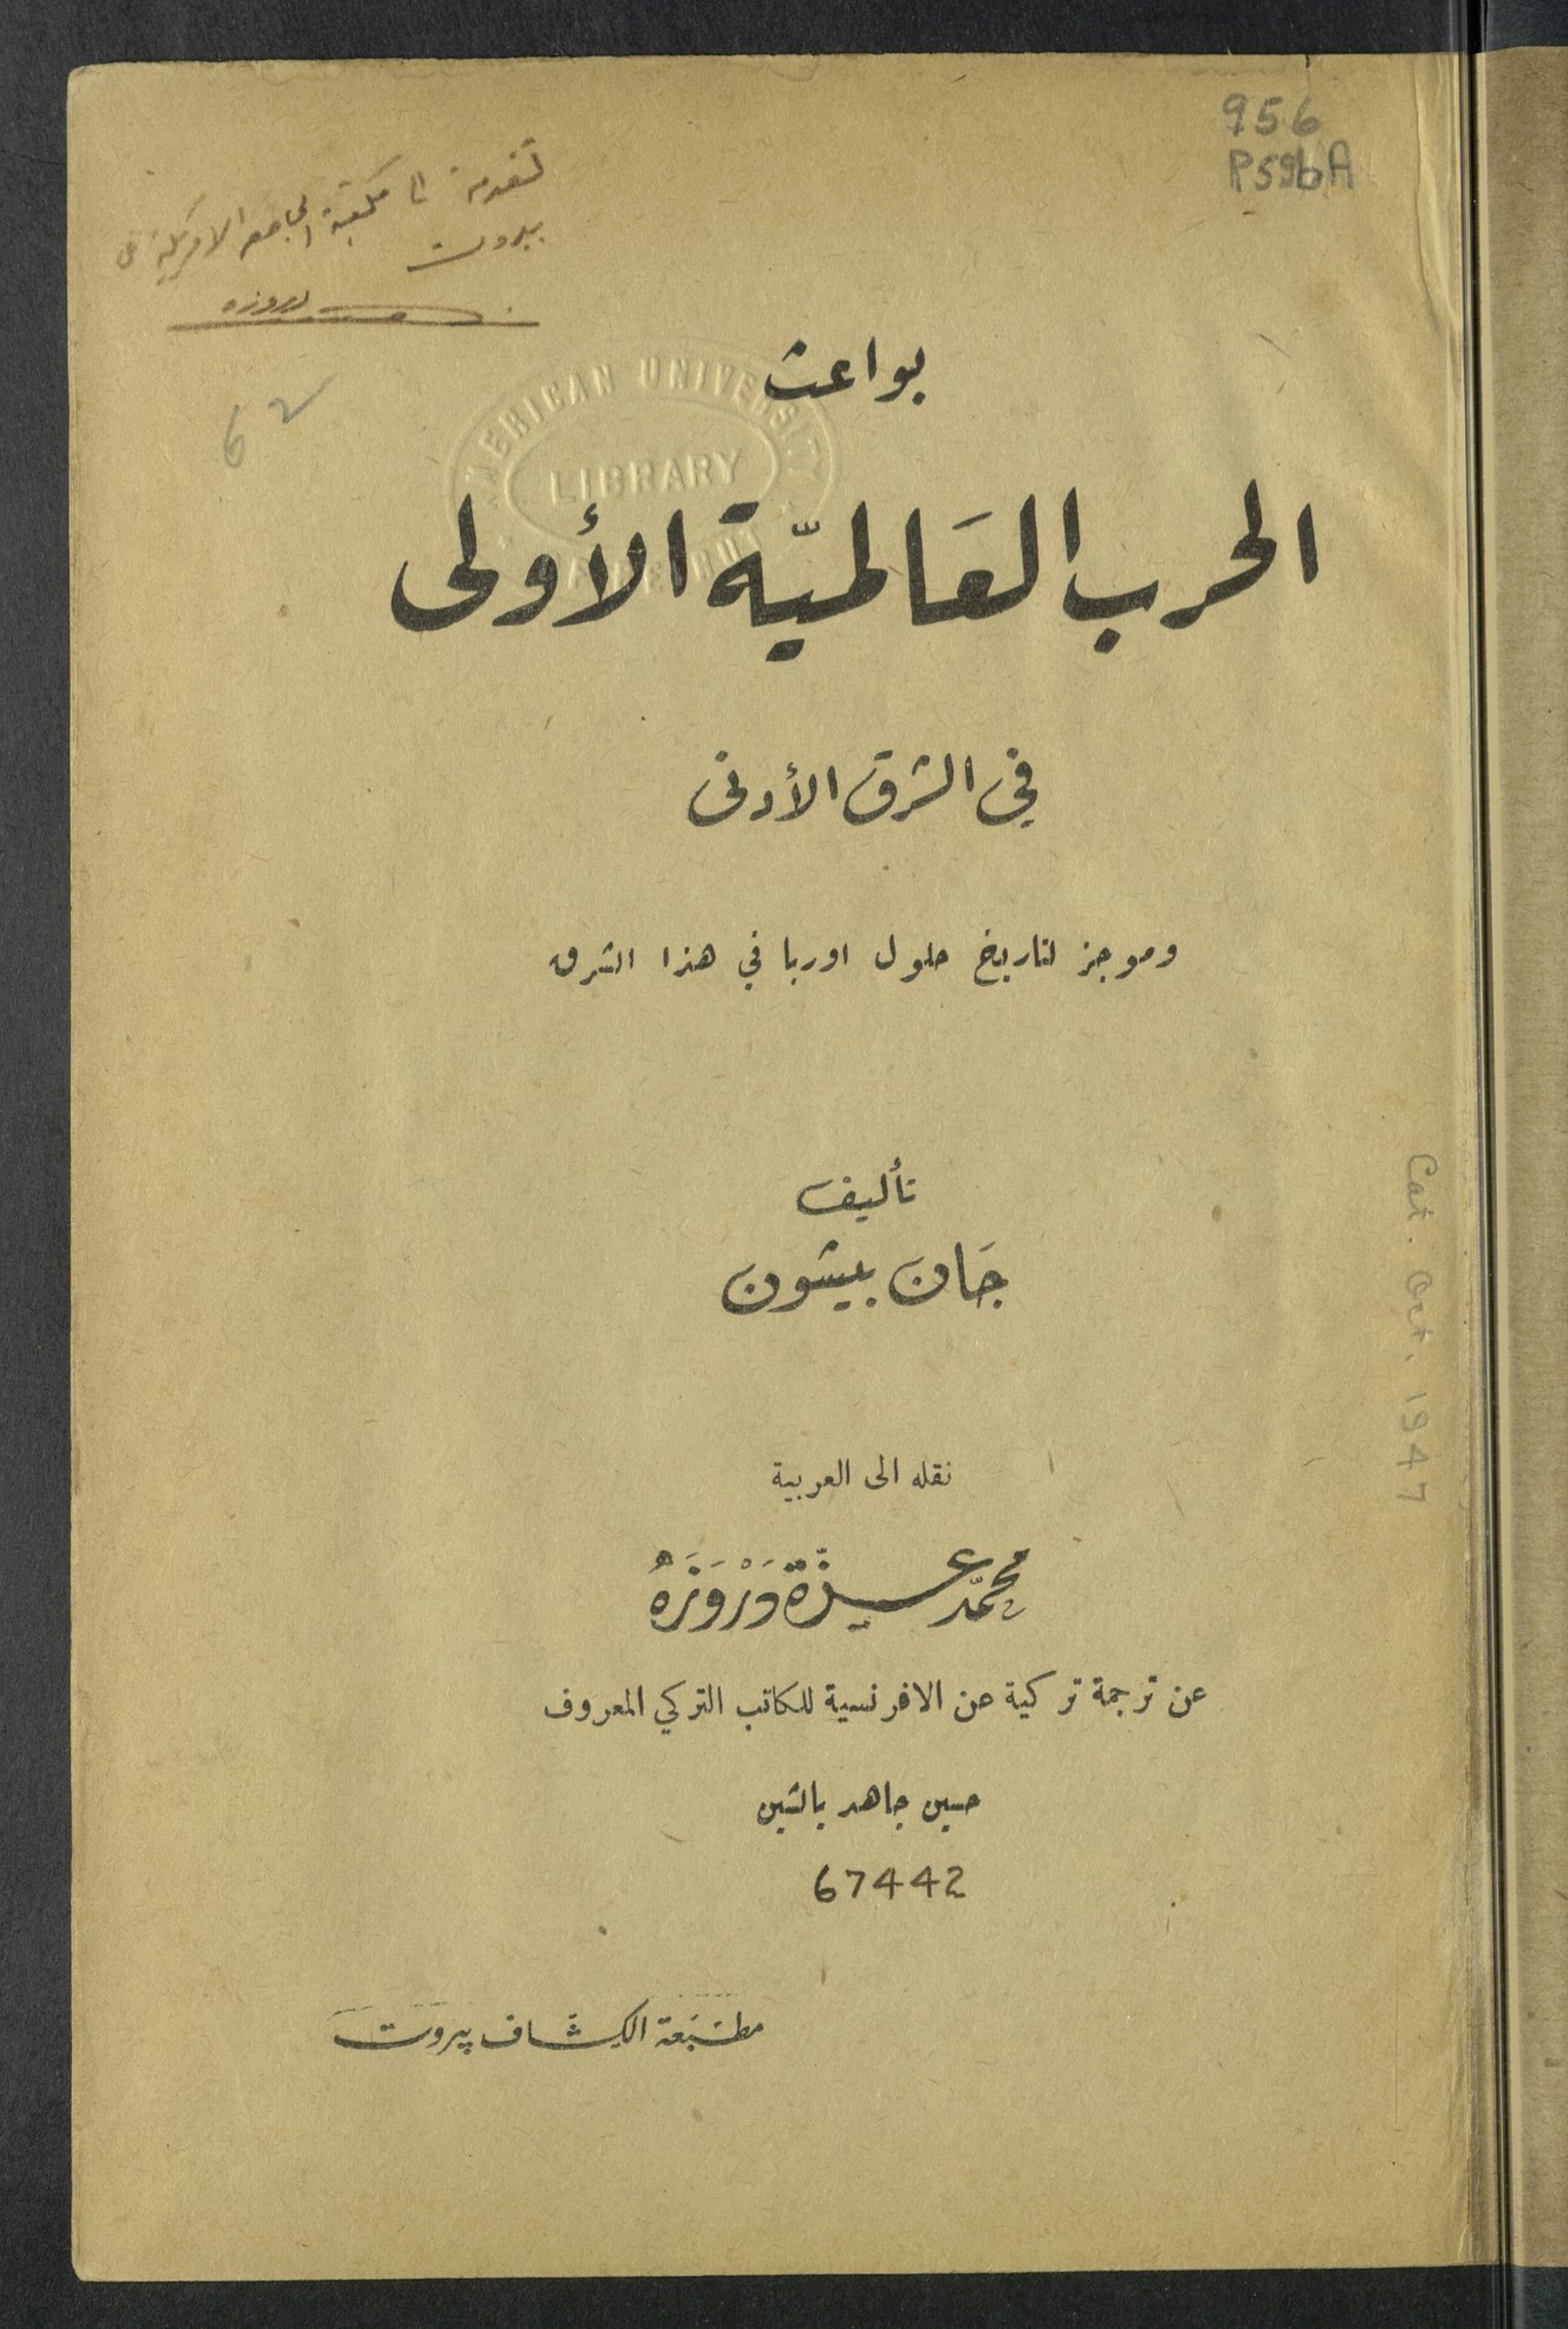 956
P59bA
تقدمة الى مكتبة الجامعة الامريكية في
بيروت
دروزه
بواعث
AMERICAN UNIVERSITY
LIBRARY
الحرب العَالميّة الأولى
في الشرق الأدنى
وموجز لتاريخ حلول اوربا في هذا الشرق
تأليف
جَان بيشون
نقله الى العربية
محمّد عزّة دَرْوَزَهْ
عن ترجمة تركية عن الافرنسية للكاتب التركي المعروف
حسين جاهد يالشين
67442
مطبَعة الكشَّاف بيروت
Cat. Oct. 1947